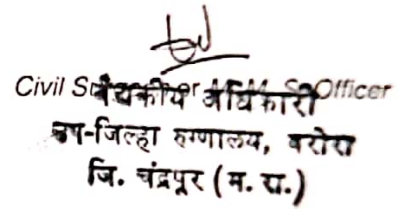 Civil Officer
वैद्यकीय अधिकारी
उप-जिल्हा रुग्णालय, वरोरा
जि. चंद्रपूर (म. रा.)